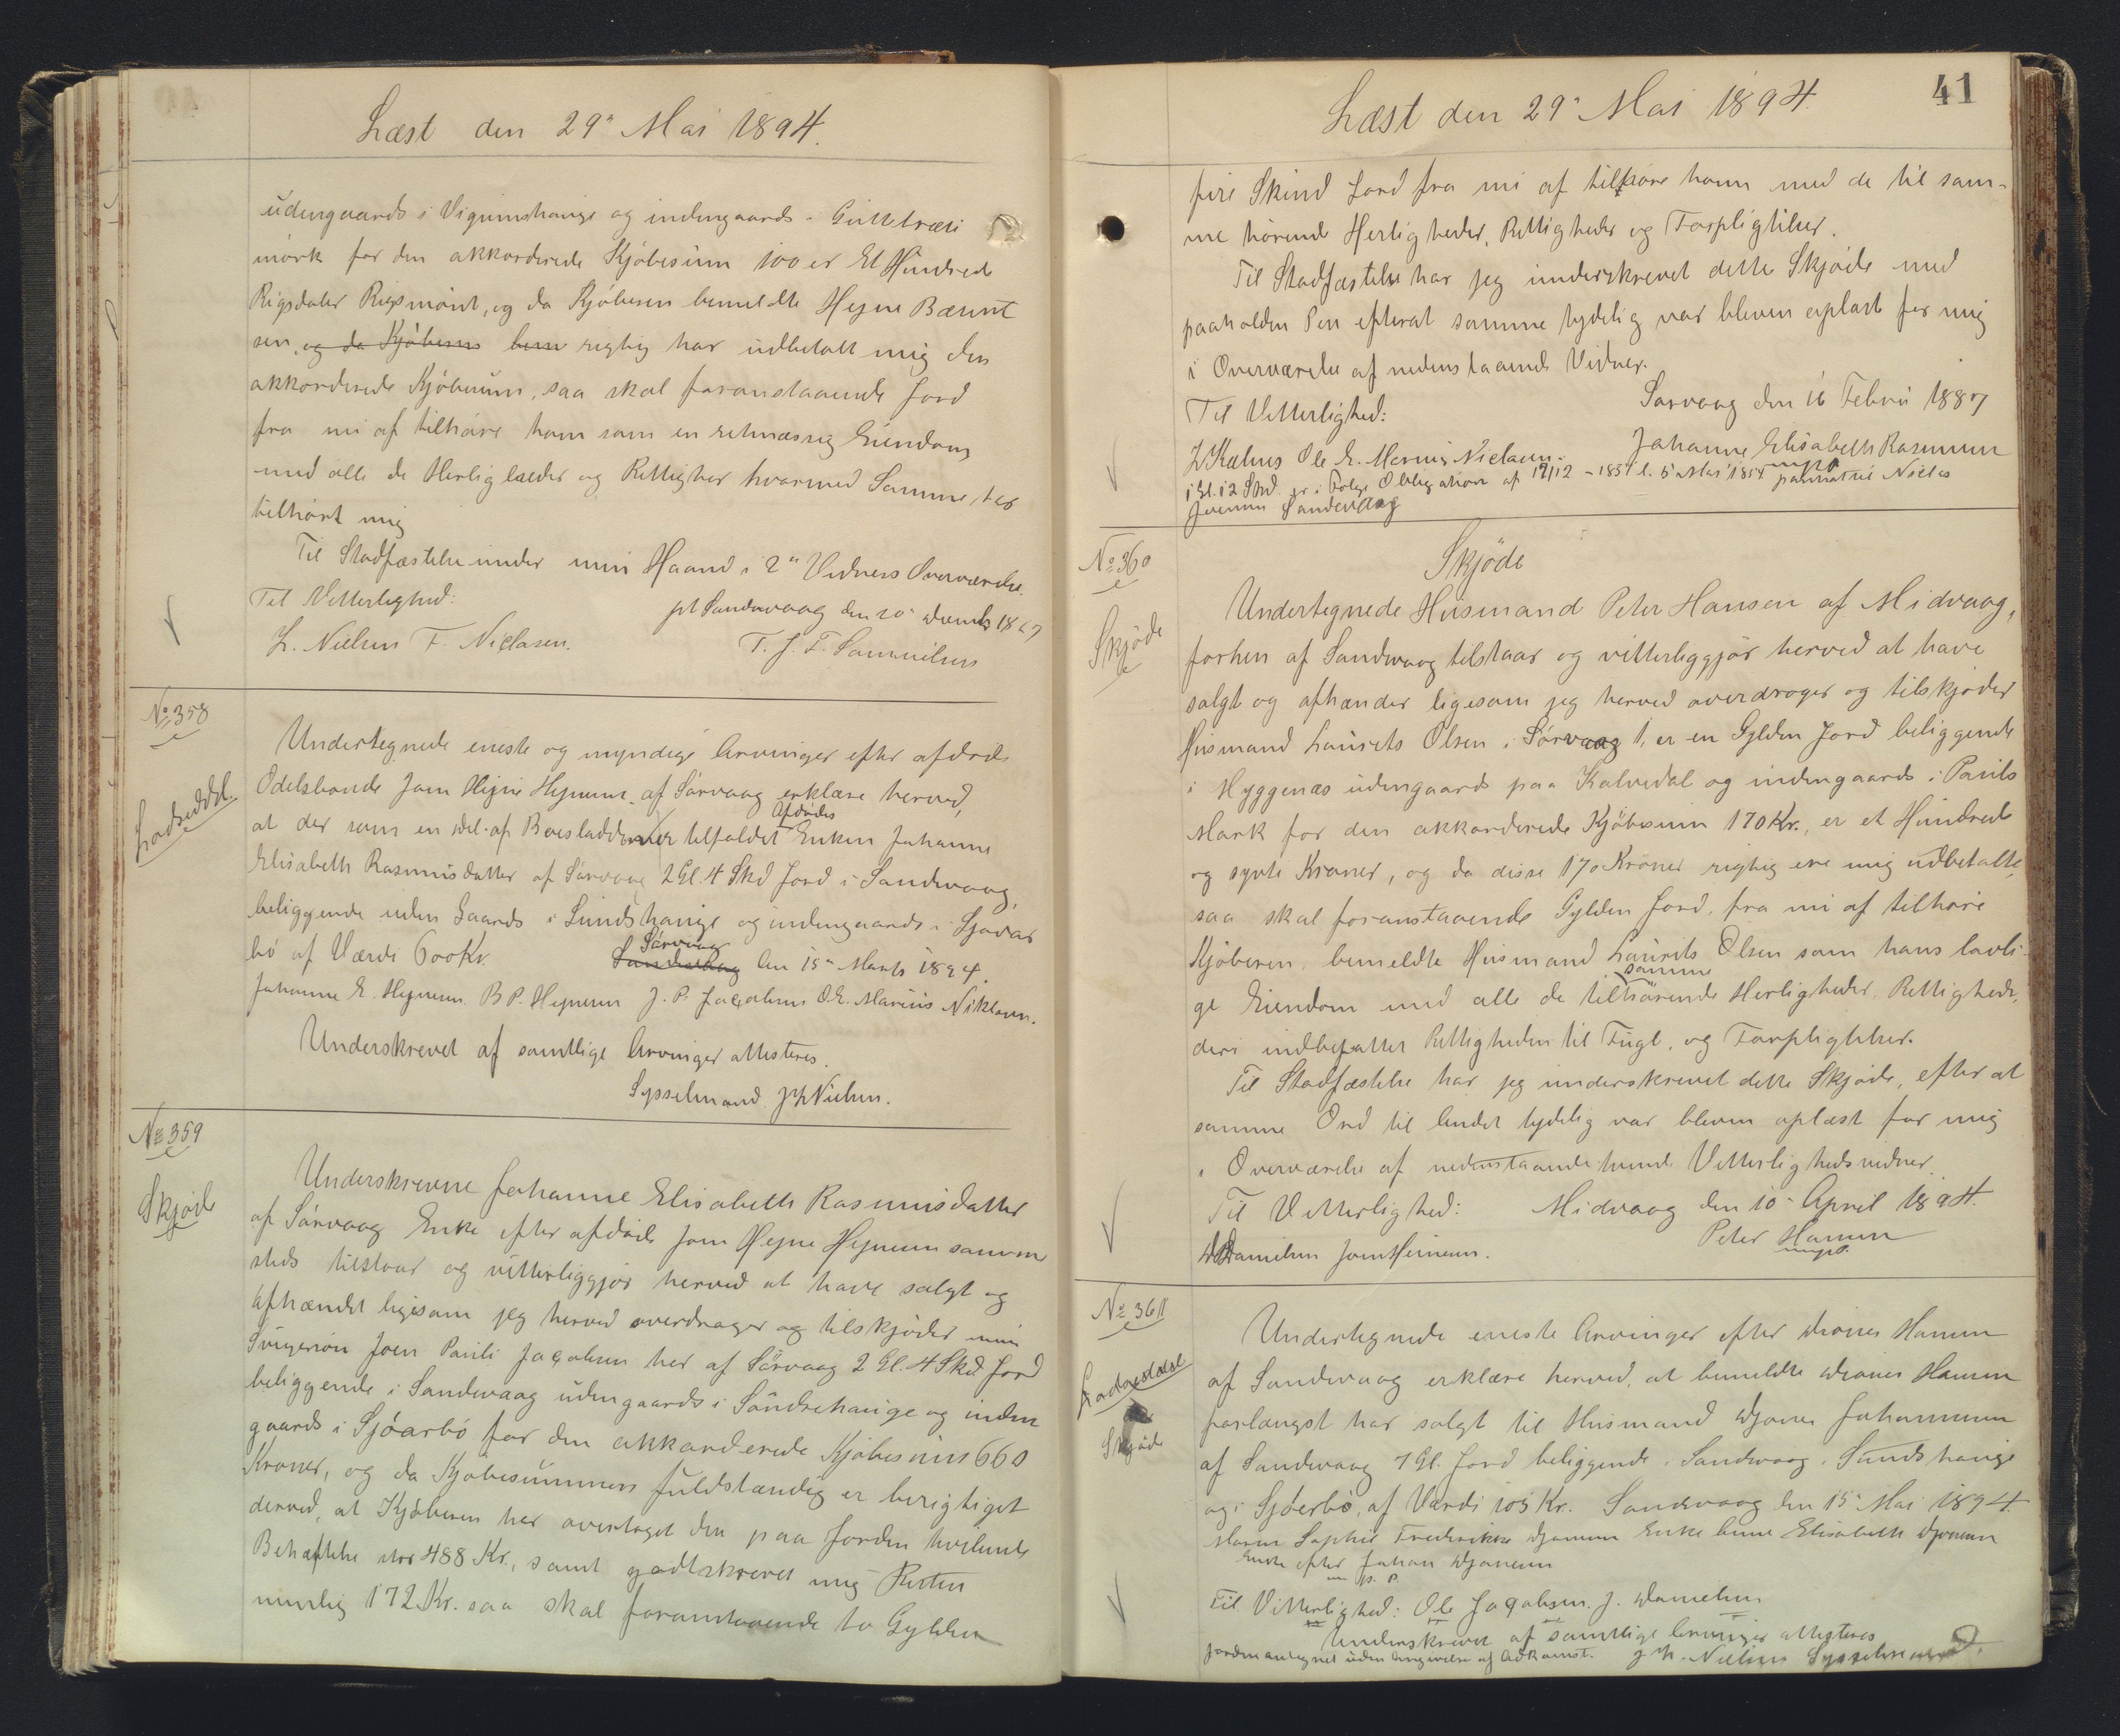 Læst den 29' Mai 1894.
udengaards i Vigumshauge og indengaards i Guttetræti
mørk for den akkorderede Kjøbesum 100 er Et Hundrede
Rigsdaler Rigsmønt, og da Kjøberen bemeldte Hejne Bærent
sen, og da Kjøberens bem rigtig har udbetalt mig den
akkorderede Kjøbesum, saa skal foranstaaende Jord
fra nu af tilhøre ham som en retmæssig Eiendom
med alle de Herligheder og Rettigher hvormed Samme har
tilhørt mig
Til Stadfæstelse under min Haand i 2" Vidners Overværelse.
Til Vitterlighed: pt Sandevaag den 20'
L. Nielsen F. Niclasen. T. J. T. Samuelsen
No 358
Lodseddel
Undertegnede eneste og myndige Arvinger efter afdøde
Odelsbonde Joen Hejne Hejnesen af Sørvaag erklære herved,
at der som en Del af Boesladden er tilfaldet Afdødes Enken Johanne
Elisabeth Rasmusdatter af Sørvaag 2 Gl. 4 Skd Jord i Sandevaag,
beliggende uden Gaards i Sundshauge og indengaards i Sjovar
bø af Værdi 600 Kr. Sandevaag Sørvaag den 15" Marts 1894.
Johanne E. Hejnesen B P. Hejnesen J. P. Jacobsen O. E. Marius Niklasen.
Underskrevet af samtlige Arvinger attesteres.
Sysselmand J H Nielsen.
No 359
Skjøde
Underskrevne Johanne Elisabeth Rasmusdatter
af Sørvaag Enke efter afdøde Joen Hejne Hejnesen samme
steds tilstaar og vitterliggjør herved at have solgt og
afhændet ligesom jeg herved overdrager og tilskjøder min
Svigersøn Joen Pauli Jacobsen her af Sørvaag 2 Gl. 4 Skd. Jord
beliggende i Sandevaag udengaards i Søndrehauge og inden
gaards i Sjóarbö for den akkorderede Kjøbesum 660
Kroner, og da Kjøbesummen fuldstændig er berigtiget
derved, at Kjøberen har overtaget den paa Jorden hvilende
Behæftelse stor 488 Kr., samt godtskrevet mig Resten
nemlig 172 Kr. saa skal foranstaaende to Gylden
41
Læst den 29' Mai 1894.
fire Skind Jord fra nu af tilhøre ham med de til sam-
me hørende Herligheder, Rettigheder og Forpligtelser.
Til Stadfæstelse har jeg underskrevet dette Skjøde med
paaholden Pen efterat samme tydelig var bleven oplæst for mig
i Overværelse af nedenstaaende Vidner.
Til Vitterlighed: Sørvaag den 16 Febru 1887
Ole E. Marius Niclasen. Johanne Elisabeth Rasmussen
m p P
1 Gl. 12 Skd. er i Følge Obligation af 12/12 - 1851 l. 5' Mai 1854 pantsat til Niclas
Joensen Sandevaag
No 360
Skjøde
Skjøde
Undertegnede Husmand Peter Hansen af Midvaag,
forhen af Sandevaag tilstaar og vitterliggjør herved at have
solgt og afhænder ligesom jeg herved overdrager og tilskjøder
Husmand Laurits Olsen i Sørvaag 1, er en Gylden Jord beliggende
i Hyggenæs udengaards paa Kalvedal og indengaards i Pauls
Mark for den akkorderede Kjøbesum 170 Kr., er et Hundrede
og syvti Kroner, og da disse 170 Kroner rigtig ere mig udbetalte,
saa skal foranstaaende Gylden Jord, fra nu af tilhøre
Kjøberen, bemeldte Husmand Laurits Olsen som hans lovli-
ge Eiendom med alle de til samme hørende Herligheder, Rettigheder,
deri indbefattet Rettigheden til Fugl, og Forpligtelser.
Til Stadfæstelse har jeg underskrevet dette Skjøde, efter at
samme Ord til andet tydelig var bleven oplæst for mig
i Overværelse af nedenstaaende tvende Vitterlighedsvidner.
Til Vitterlighed: Midvaag den 10' April 1894.
Danielsen Joen Heinesen. Peter Hansen
m p P.
No 361
Lodseddel
Skjøde
Undertegnede eneste Arvinger efter Djones Hansen
af Sandevaag erklære herved, at bemeldte Djones Hansen
forlængst har solgt til Husmand Djones Johannesen
af Sandevaag 1 Gl. Jord beliggende i Sandevaag i Sundshauge
og i Sjóerbö, af Værdi 105 Kr. Sandevaag den 15' Mai 1894.
Maren Sophie Frederikke Djonesen Enke Anne Elisabeth Djonesen
Enke efter Johan Djonesen
m p. P.
Til Vitterlighed: Ole Jacobsen. J. Danielsen
Underskrevet af samtlige Arvinger attesteres
Jorden antegnet uden Angivelse af Adkomst. J H. Nielsen Sysselmand.